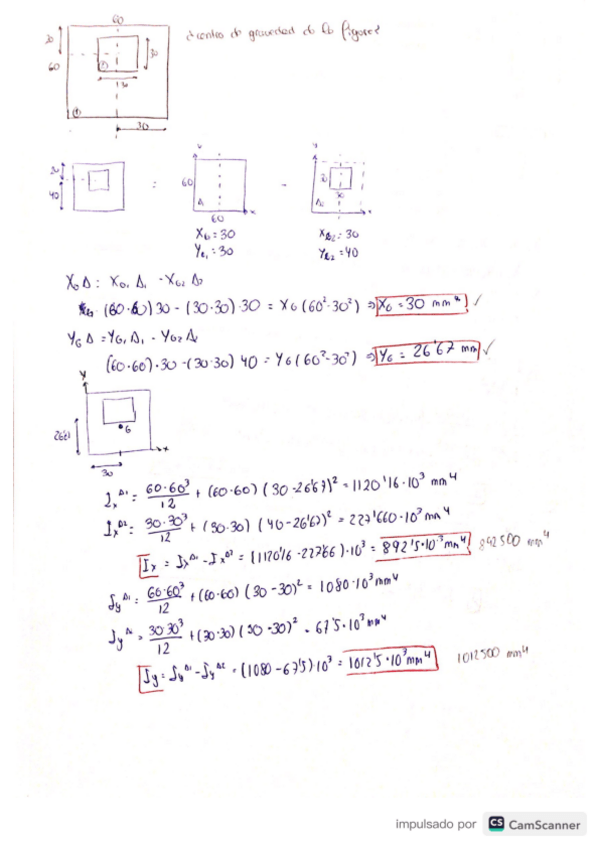 60
¿centro de gravedad de la figura?
20
60
30
2
30
1
30
20
40
:
-
y
60
A1
x
60
y
30
30
A2
x
XG1 = 30
YG1 = 30
XG2 = 30
YG2 = 40
XG A : XG1 A1 - XG2 A2
(60·60)30 - (30·30)·30 = XG (60²-30²) ⇒ XG = 30 mm⁴ ✓
YG A = YG1 A1 - YG2 A2
(60·60)·30 - (30·30) 40 = YG (60²-30²) ⇒ YG = 26'67 mm ✓
y
26'67
G
x
30
Ix^A1 = 60·60³/12 + (60·60) (30-26'67)² = 1120'16·10³ mm⁴
Ix^A2 = 30·30³/12 + (30·30) (40-26'67)² = 227'660·10³ mm⁴
Ix = Ix^A1 - Ix^A2 = (1120'16 - 227'66)·10³ = 892'5·10³ mm⁴ 892500 mm⁴
Iy^A1 = 60·60³/12 + (60·60) (30-30)² = 1080·10³ mm⁴
Iy^A2 = 30·30³/12 + (30·30) (30-30)² = 67'5·10³ mm⁴
Iy = Iy^A1 - Iy^A2 = (1080-67'5)·10³ = 1012'5·10³ mm⁴ 1012500 mm⁴
impulsado por CS CamScanner